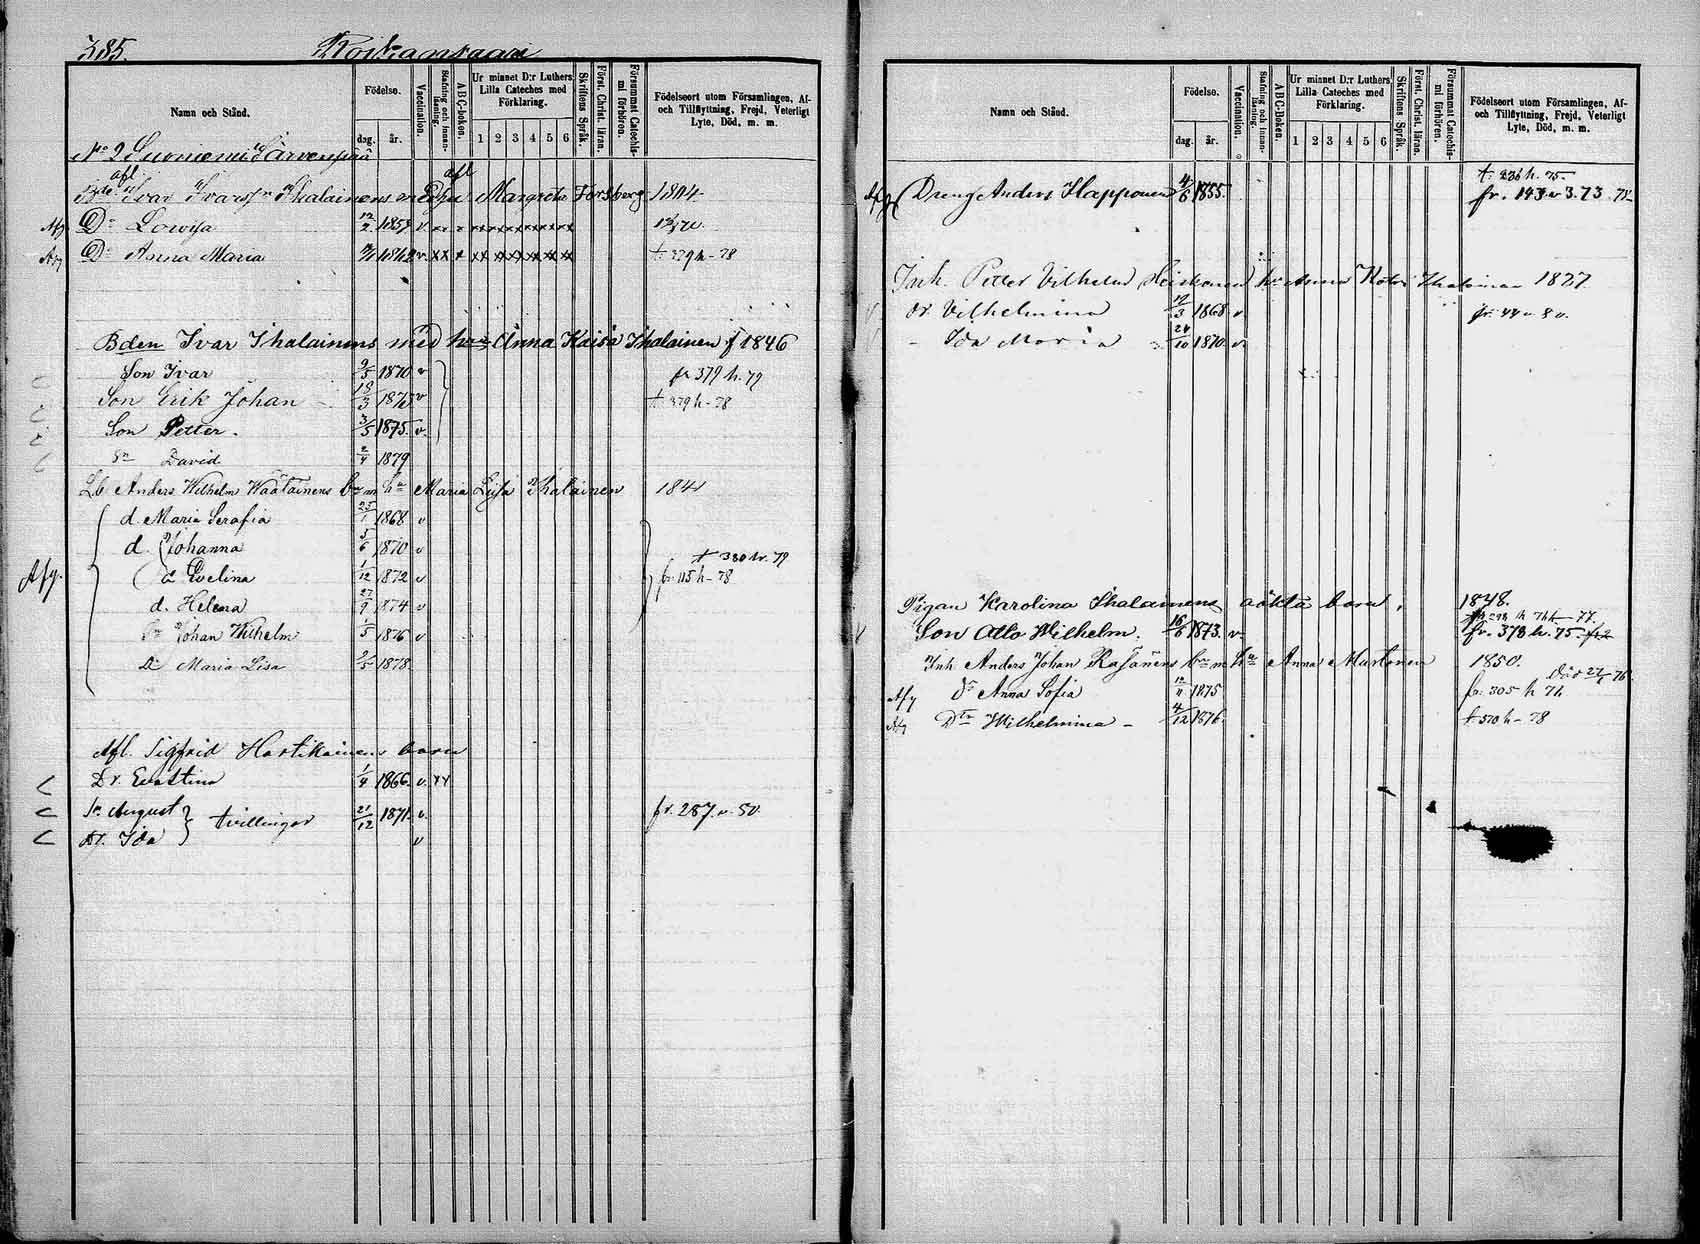 385. Roikansaari
Namn och Stånd.
Födelse.
dag. år.
Vaccination.
Stafning och innan-läsning.
ABC-boken.
Ur minnet D:r Luthers Lilla Cateches med Förklaring.
1 2 3 4 5 6
Skriftens Språk.
Först. Christ. läran.
Försummat Catechismi förhören.
Födelseort utom Församlingen, Af- och Tillflyttning, Frejd, Veterligt Lyte, Död, m. m.
No 2 Suoniemi Järvenpää
afl afl
Ivar Ivarss:n Ihalainens Margreta Forsberg 1804
Afg Dr Lovisa 12/2 1857 v
Afg Dr Anna Maria 1862 v xx x xx xx xx xx xx t. 379 h - 78
Bden Ivar Ihalainens med hu Anna Kaisa Ihalainen f 1846
Son Ivar 9/5 1870 v fr 379 h. 79
Son Erik Johan 18/3 187 v t. 379 h - 78
Son Petter. 3/5 1875. v.
Sn David 2/4 1879
Lb Anders Wilhelm Waatainens bn m hu Maria Lisa Ihalainen 184
d. Maria Serafia 25/1 1868 v
d. Johanna 5/6 1870 v t 380 h. 79
Afg. d Evelina 1/12 1872 v fr. 115 h - 78
d. Helena 27/9 1874 v
Sn Johan Wilhelm 1/5 1876 v
Dr Maria Lisa 2/5 1878.
Afl. Sigfrid Hartikainens barn
Dr. Evastina 1/4 1866. v. xx
Sn August } tvillingar 21/12 1871. v. fr. 287. v. 50
Dr. Ida v
Namn och Stånd.
Födelse.
dag. år.
Vaccination.
Stafning och innan-läsning.
ABC-Boken.
Ur minnet D:r Luthers Lilla Cateches med Förklaring.
1 2 3 4 5 6
Skriftens Språk.
Först. Christ. läran.
Försummat Catechismi förhören.
Födelseort utom Församlingen, Af- och Tillflyttning, Frejd, Veterligt Lyte, Död, m. m.
t. 236 h. 75.
Afg Dreng Anders Happonen 4/6 1855. fr. 193 v 3. 73
Inh. Petter Vilhelm Heiskanen hu Anna Kotr Ihalainen 1827
dr. Vilhelmina 17/3 1868 v fr. 44 v 8 v.
- Ida Maria 24/10 1870 v
Pigan Karolina Ihalainens oäkta barn. 1848.
Son Otto Wilhelm. 16/6 1873. v fr. 378 h. 75.
Inh Anders Johan Räsänens bn m hu Anna Martonen 1850.
Död 27/ 76
Afg dr Anna Sofia 12/11 1875 fr. 305 h 76
Afg Dtr Wilhelmina - 4/12 1876. t 510 h - 78